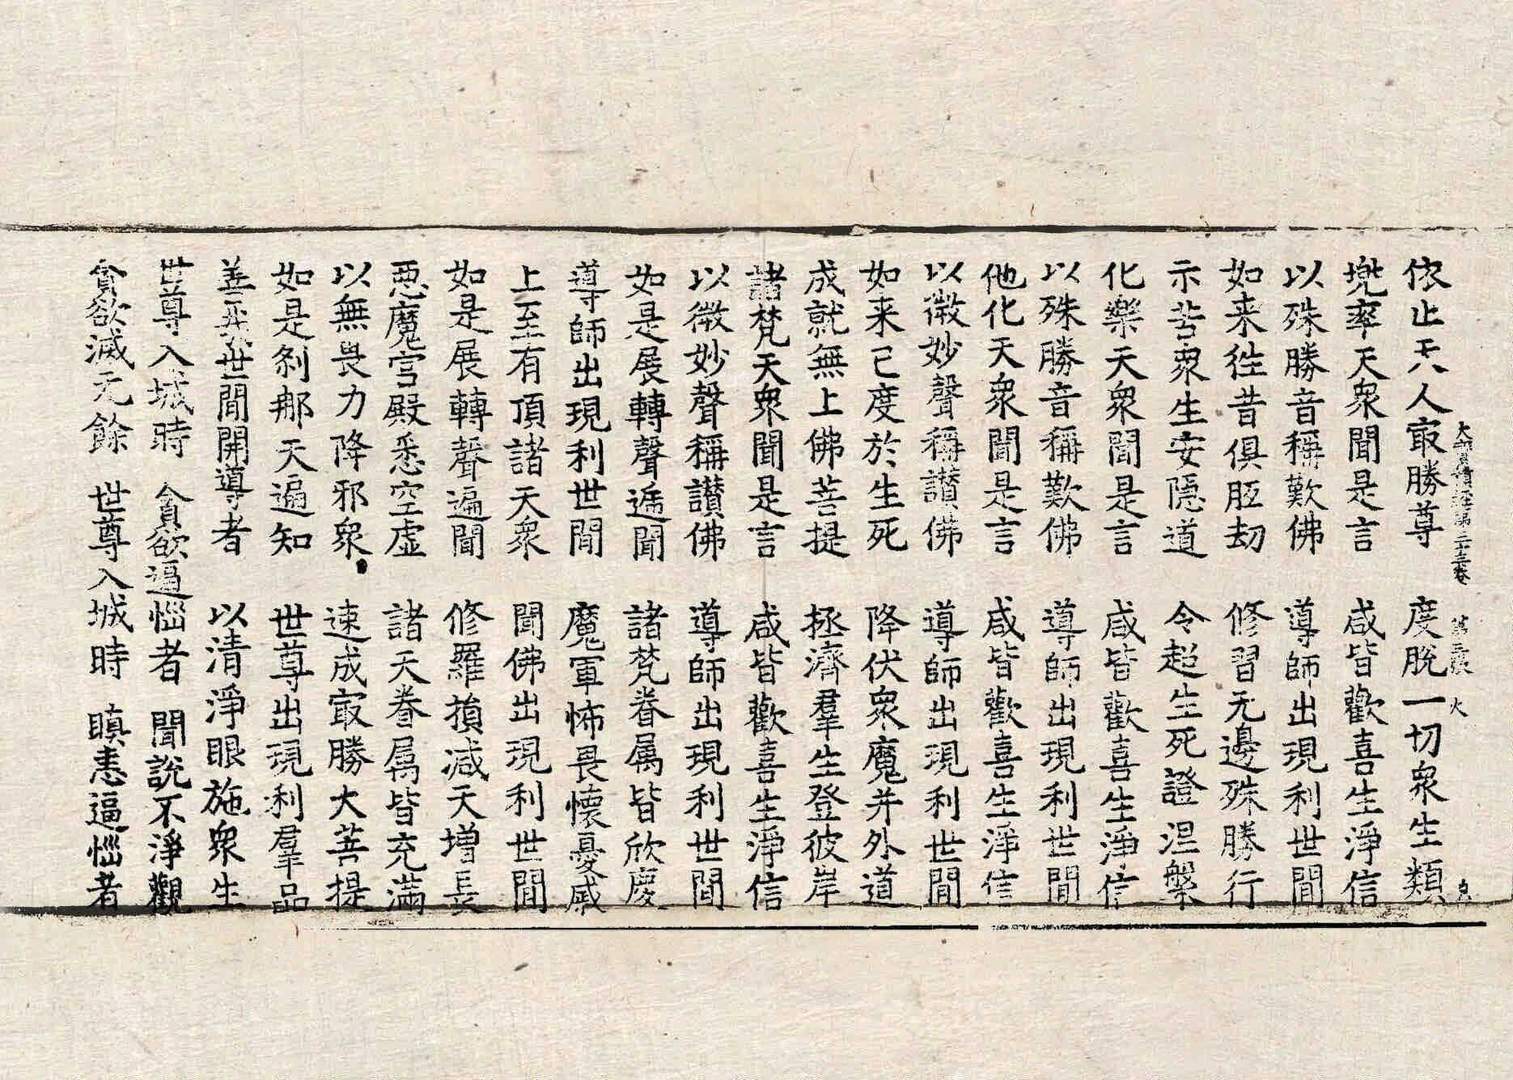 依止天人冣勝尊　度脫一切衆生類
兠率天衆聞是言　咸皆歡喜生淨信
以殊勝音稱歎佛　導師出現利世間
如来往昔俱胝劫　修習无邊殊勝行
示苦衆生安隱道　令超生死證涅槃
化樂天衆聞是言　咸皆歡喜生淨信
以殊勝音稱歎佛　導師出現利世間
他化天衆聞是言　咸皆歡喜生淨信
以微妙聲稱讃佛　導師出現利世間
如来已度於生死　降伏衆魔并外道
成就無上佛菩提　拯濟羣生登彼岸
諸梵天衆聞是言　咸皆歡喜生淨信
以微妙聲稱讃佛　導師出現利世間
如是展轉聲遍聞　諸梵眷属皆欣慶
導師出現利世間　魔軍怖畏懷憂慼
上至有頂諸天衆　聞佛出現利世間
如是展轉聲遍聞　修羅損减天增長
惡魔宫殿悉空虛　諸天眷属皆充滿
以無畏力降邪衆　速成冣勝大菩提
如是刹那天遍知　世尊出現利羣品
善哉世間開導者　以清淨眼施衆生
世尊入城時　貪欲逼惱者　聞說不淨觀
貪欲滅无餘　世尊入城時　瞋恚逼惱者
大寶積經第三十五卷　第三張　火